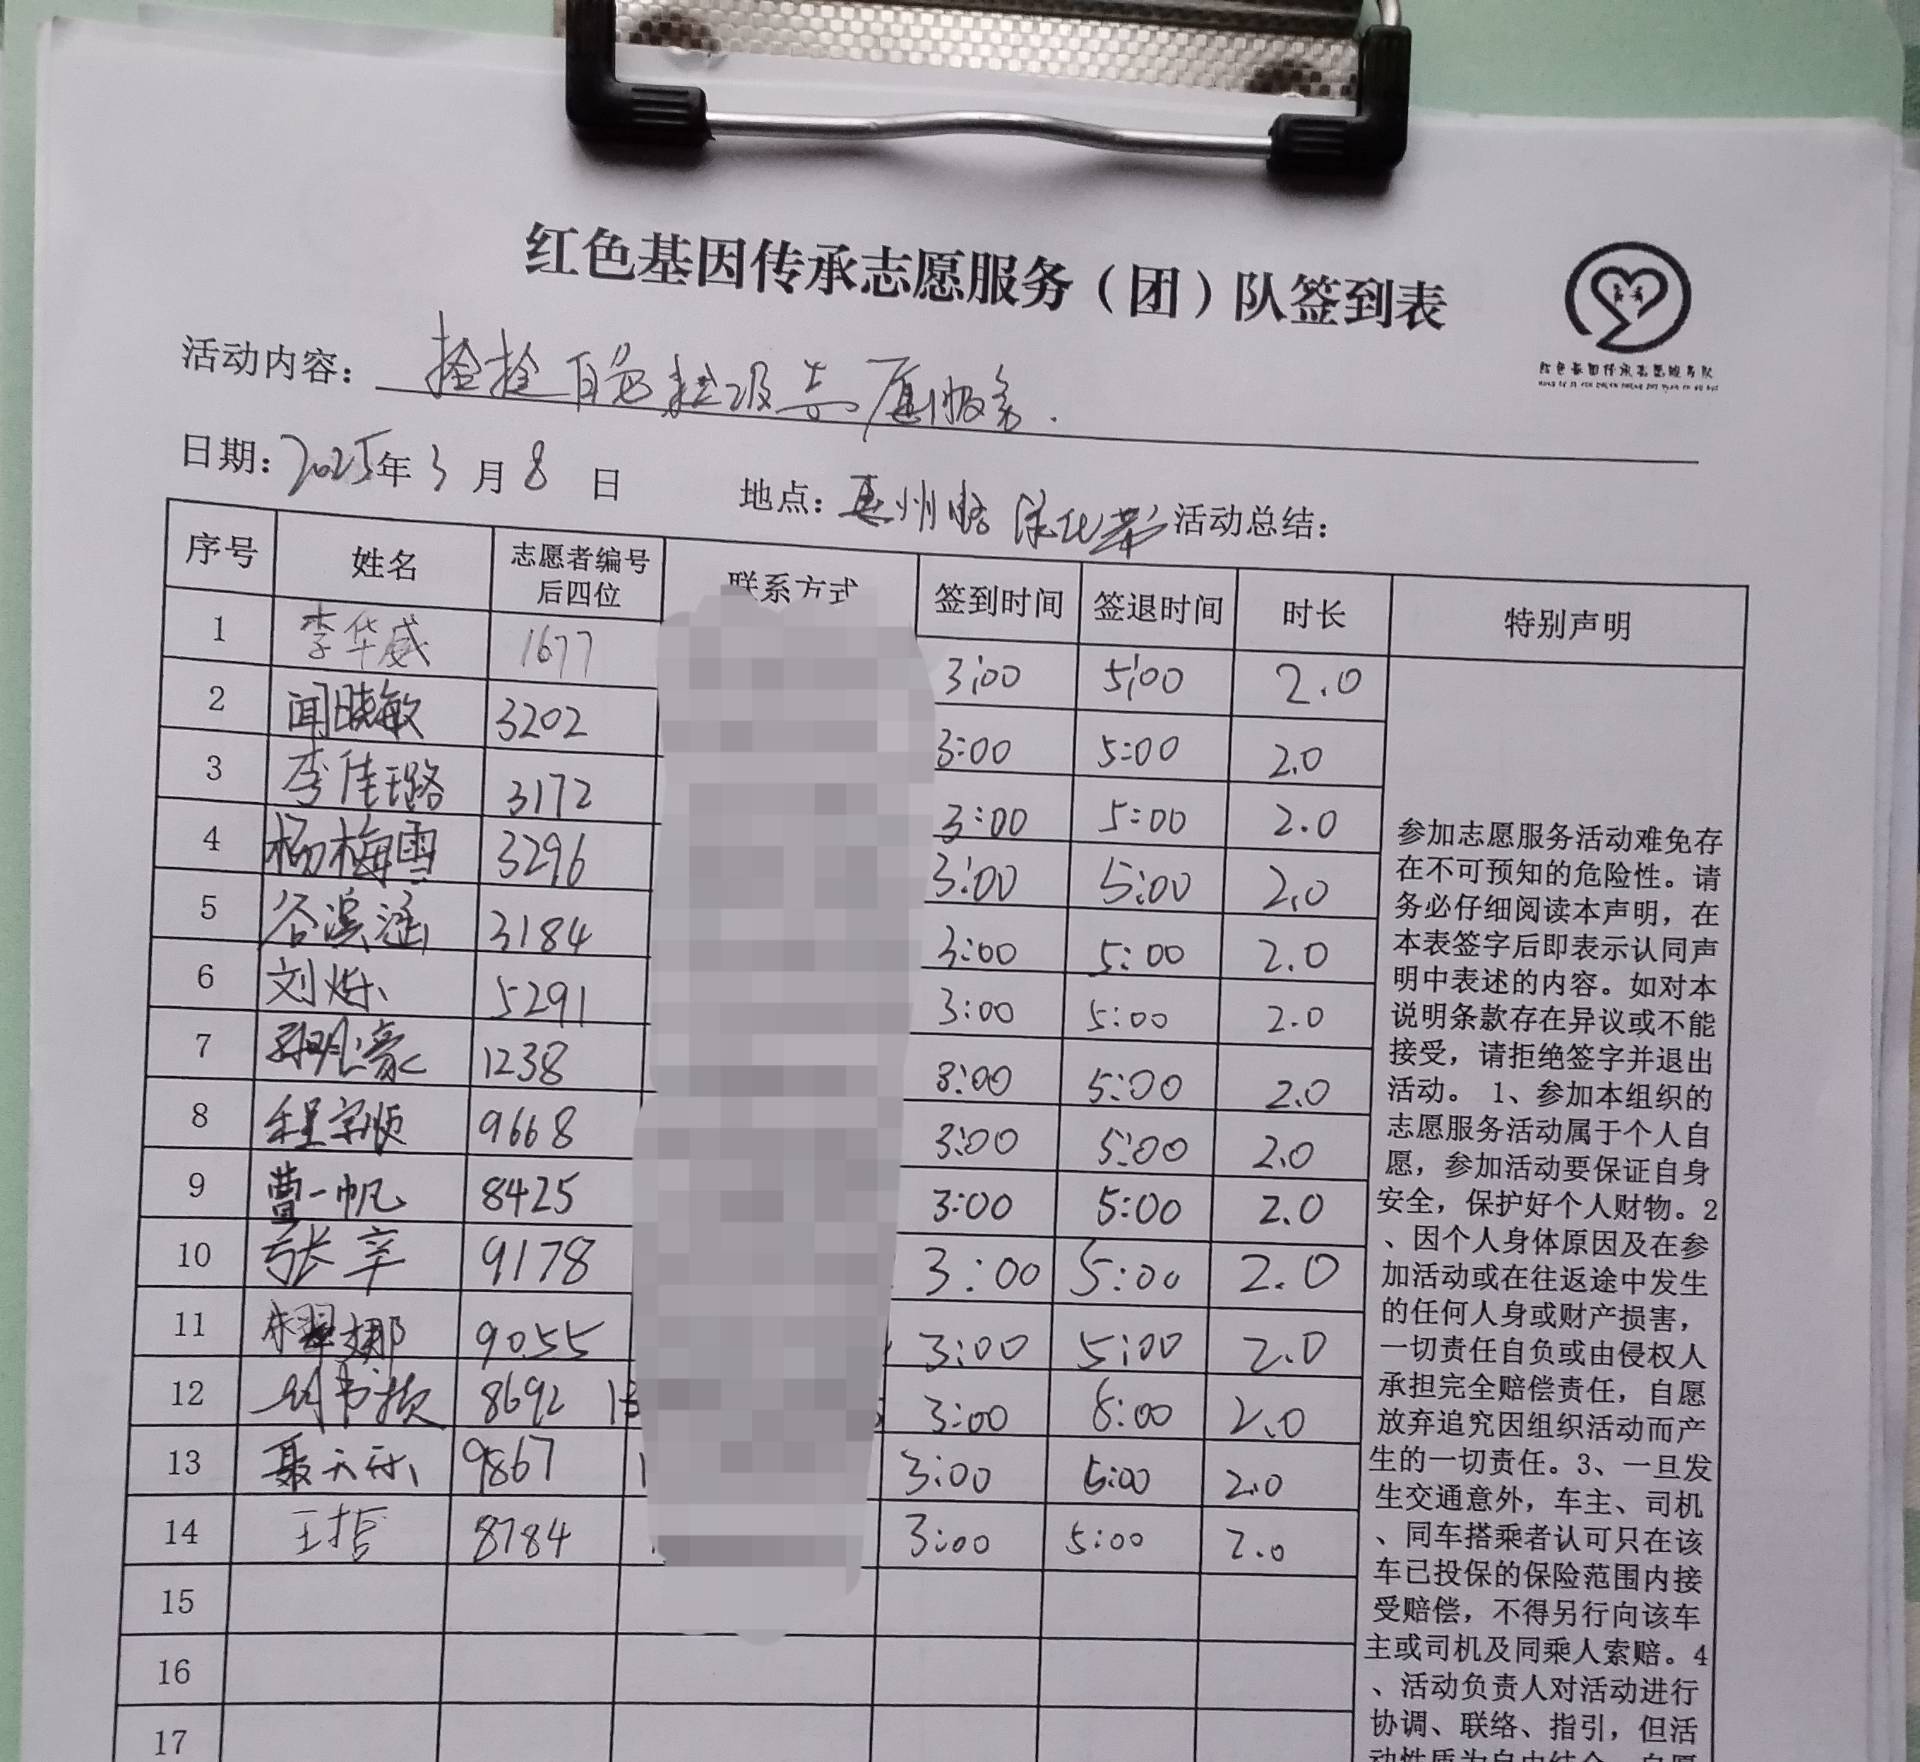 红色基因传承志愿服务（团）队签到表
红色基因传承志愿服务队
活动内容： 捡拾白色垃圾志愿服务.
日期：2025年3月8日 地点：惠州路 活动总结：
序号 姓名 志愿者编号后四位 联系方式 签到时间 签退时间 时长 特别声明
1 李华威 1677 3:00 5:00 2.0
2 闻晓敏 3202 3:00 5:00 2.0
3 李佳璐 3172 3:00 5:00 2.0
4 杨梅雪 3296 3:00 5:00 2.0
5 谷溪涵 3184 3:00 5:00 2.0
6 刘烁 5291 3:00 5:00 2.0
7 豪 1238 3:00 5:00 2.0
8 程宇顺 9668 3:00 5:00 2.0
9 曹一帆 8425 3:00 5:00 2.0
10 张辛 9178 3:00 5:00 2.0
11 娜 9055 3:00 5:00 2.0
12 8692 3:00 5:00 2.0
13 聂天乐 9867 3:00 5:00 2.0
14 王哲 8784 3:00 5:00 2.0
15
16
17
参加志愿服务活动难免存
在不可预知的危险性。请
务必仔细阅读本声明，在
本表签字后即表示认同声
明中表述的内容。如对本
说明条款存在异议或不能
接受，请拒绝签字并退出
活动。 1、参加本组织的
志愿服务活动属于个人自
愿，参加活动要保证自身
安全，保护好个人财物。2
、因个人身体原因及在参
加活动或在往返途中发生
的任何人身或财产损害，
一切责任自负或由侵权人
承担完全赔偿责任，自愿
放弃追究因组织活动而产
生的一切责任。3、一旦发
生交通意外，车主、司机
、同车搭乘者认可只在该
车已投保的保险范围内接
受赔偿，不得另行向该车
主或司机及同乘人索赔。4
、活动负责人对活动进行
协调、联络、指引，但活
动性质为自由结合、自愿